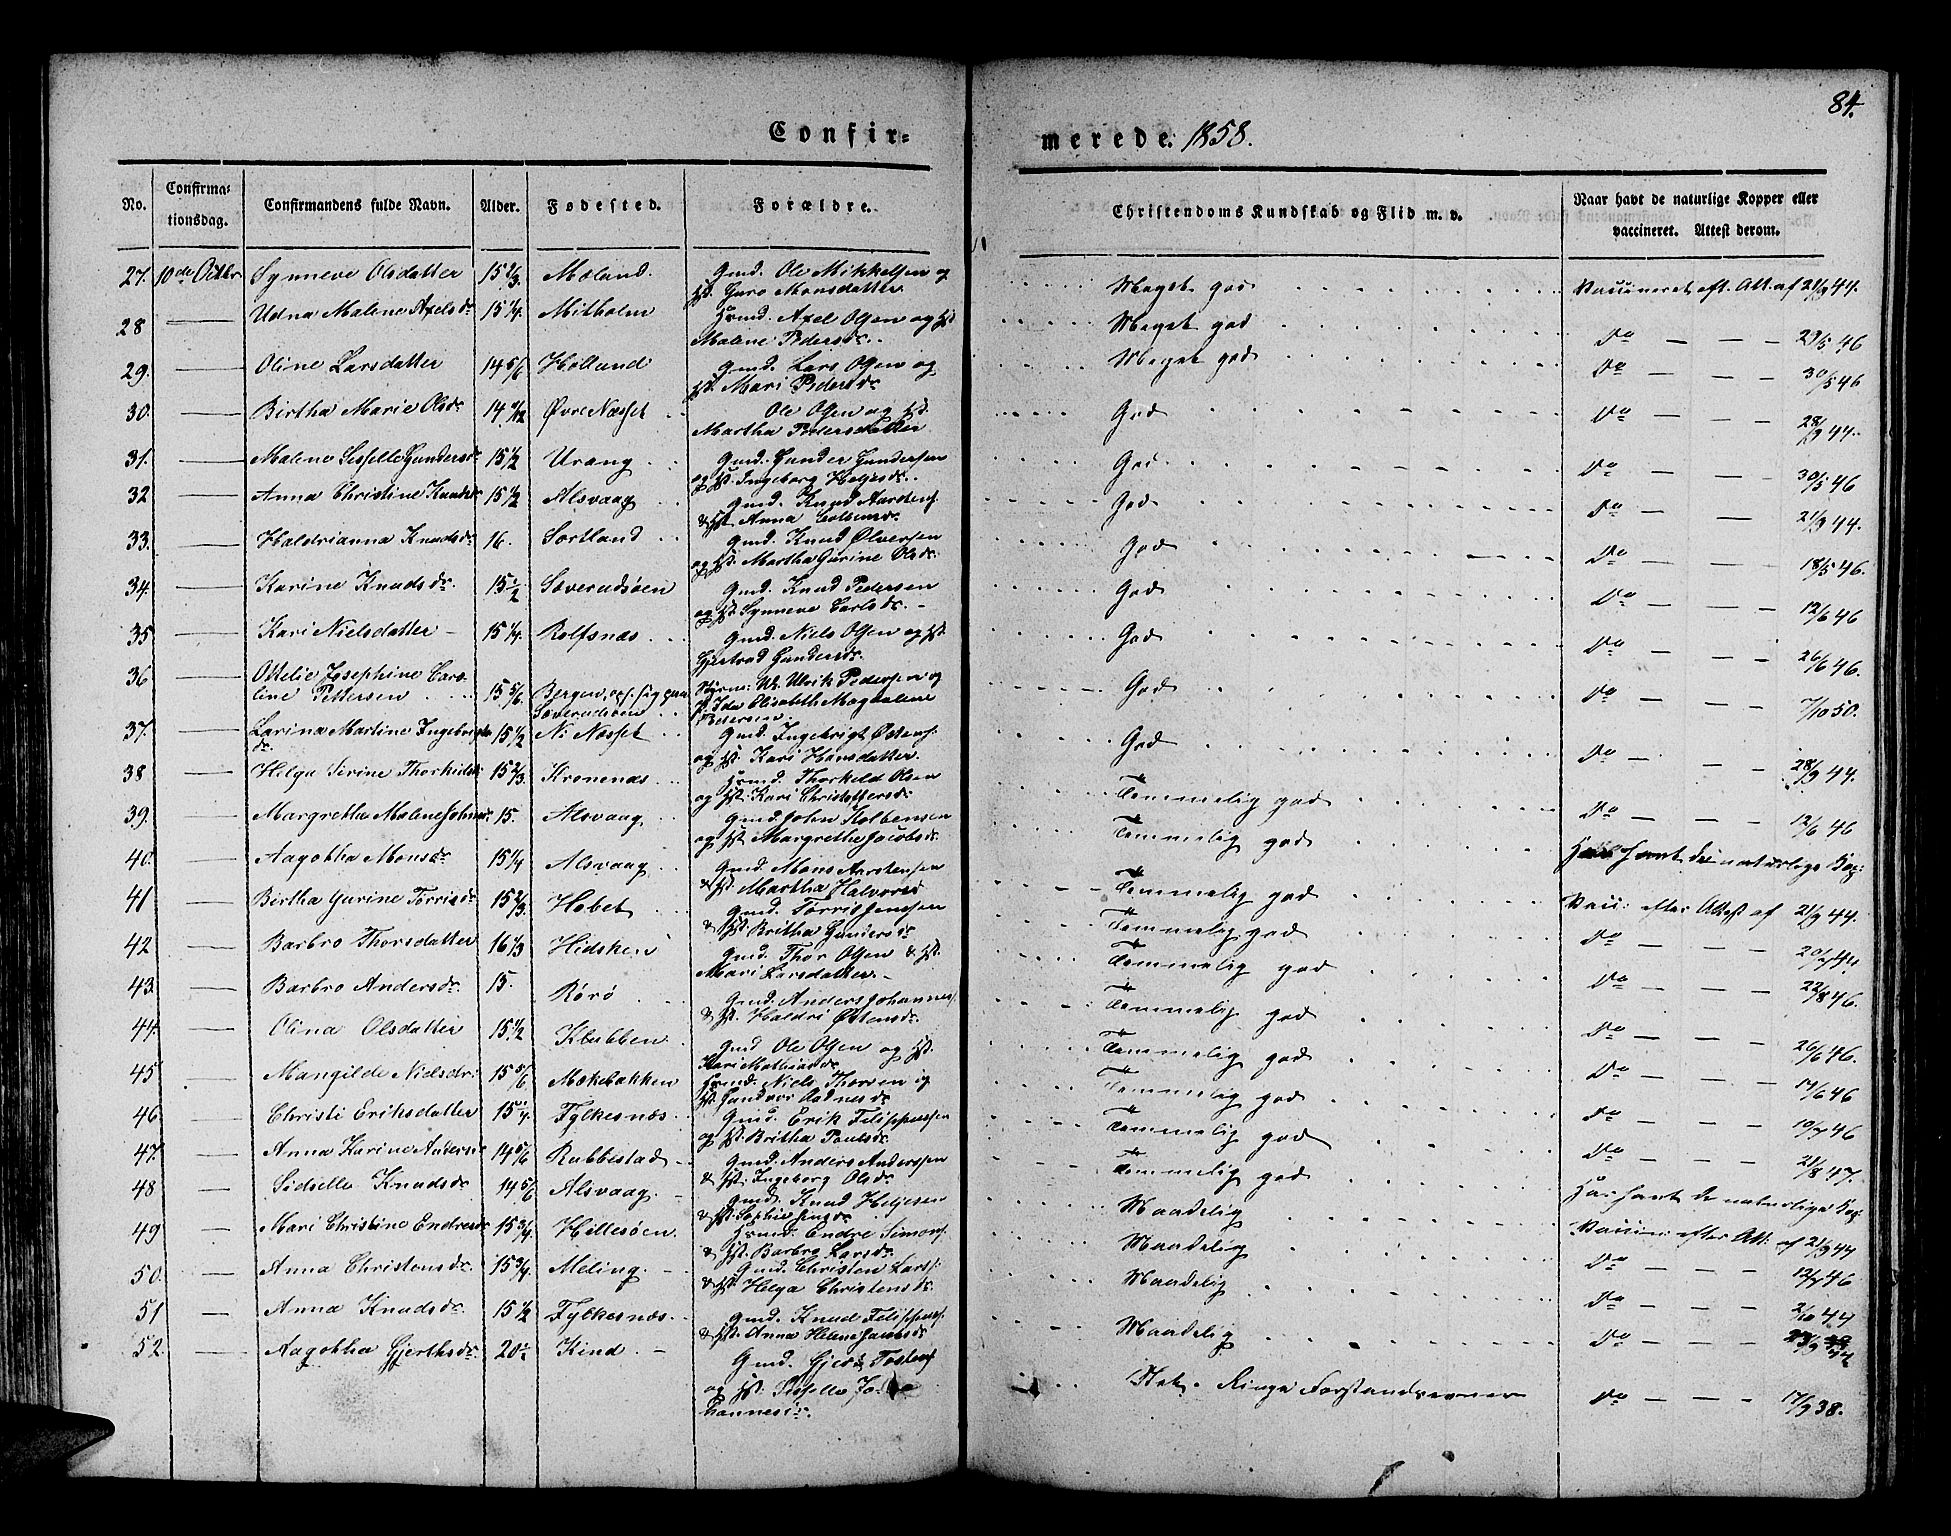 84.
Confir= merede. 1858.
No. Confirma= tionsdag. Confirmandens fulde Navn. Alder. Fødested. Forældre. Christendoms Kundskab og Flid m. v. Naar havt de naturlige Kopper eller vaccineret. Attest derom.
27. 10de Octbr Synneve Olsdatter 15 2/3. Mæland. Gmd. Ole Mikkelsen og Hst. Guro Monsdatter Meget god Vaccineret eft. Att. af 21/9 44.
28 — Udna Malene Axelsdr. 15 1/4. Mitholm Hsmd. Axel Olsen og Hst Malene Pedersdr. Meget god Do — — — 29/5 46
29. — Oline Larsdatter 14 5/6 Hølland Gmd. Lars Olsen og Hst. Mari Pedersdr. Meget god Do — — — 30/5 46
30. — Birtha Marie Olsdr. 14 11/12 Øvre Næsset Ole Olsen og Hst. Martha Pedersdatter God Do — — 28/9 44.
31. — Malene Sisselle Gundersdr. 15 1/2 Urang Gmd. Gunder Gundersen og Hst. Ingeborg Helgesdr. God Do — — 30/5 46
32 — Anna Christine Knudsdr 15 1/2 Alsvaag Gmd. Knud Aarstens. & Hst. Anna Colbensdr. God Do — — 21/9 44.
33. — Haldrianna Knudsdr. 16. Sortland Gmd. Knud Ølversen og Hst. Martha Gurine Olsdr. God Do — — 18/5 46.
34. — Karine Knudsdr. 15 1/2 Soverudsøen Gmd. Knud Pedersen og Hst. Synneve Carlsdr. God Do — — — 12/6 46
35 — Kari Nielsdatter 15 1/4. Rolfsnæs Gmd. Niels Olsen og Hst. Gjertrud Gundersdr. God Do — — — 26/6 46.
36 — Ottelie Josephine Caro= line Pettersen 15 5/6. Bergen, op. sig paa Soverudsøen Styrm: Ulrik Pedersen og H. Ida Elisabeth Magdalene Pedersen. God Do — — — 7/10 50.
37. — Larina Martine Ingebrigts dr. 15 1/2 N: Næsset Gmd. Ingebrigt Østens. og Hst. Kari Hansdatter. God Do — — — 28/9 44.
38 — Helga Serine Thorkilds 15 2/3. Kronenæs Hsmd. Thorkild Olsen og Hst. Kari Christoffersdr. Temmelig god Do — — — 12/6 46
39. — Margretha Malene Johnsdr. 15. Alsvaag Gmd. John Kolbensen og Hst. Margrethe Jacobsdr. Temmelig god Har havt de naturlige Kop:
40. — Aagotha Monsdr. 15 1/4 Alsvaag Gmd. Mons Aarstensen & Hst. Martha Halvorsd Temmelig god Vacc: efter Attest af 21/9 44.
41 — Birtha Gurine Torrisdr. 15 2/3. Hobet Gmd. Torris Jensen & Hst. Britha Gundersdr. Temmelig god Do — — — 20/7 44.
42. — Barbro Thorsdatter 16 1/3 Hidsken Gmd. Thor Olsen & Hst. Mari Larsdatter. Temmelig god Do — — — 22/8 46.
43 — Barbro Andersdr. 15. Rørø Gmd. Anders Johannes. & Hst. Haldri Østensdr. Temmelig god Do — — — 26/6 46.
44. — Olina Olsdatter 15 1/2 Klubben Gmd Ole Olsen og Hst. Kari Mathiasdr. Temmelig god Do — — — 17/6 46
45 — Mangilde Nielsdr. 15 5/6 Møkebakken Hsmd. Niels Thorsen og Hst. Aadnesdr. Temmelig god Do — — — 10/7 46
46. — Christi Eriksdatter 15 1/4. Fylkesnæs Gmd. Erik Filippussen og Hst. Britha Poulsdr. Temmelig god Do — — — 21/8 47.
47. — Anna Karine Andersdr 14 5/6 Rubbestad Gmd. Anders Anderssen & Hst. Ingeborg Olsdr. Temmelig god Har havt de naturlige Kop:
48 — Sidselle Knudsdr. 14 5/6 Alsvaag. Gmd. Knud Helgesen & Hst. Sophie Jensdr. Maadelig Vaccin: efter Att: af 21/9 44
49 — Mari Christine Endresdr 15 3/4 Hillesøen Hsmd. Endre Simons. & Hst. Barbro Larsdr. Maadelig Do — — — 12/7 46
50. — Anna Christensdr. 15 3/4. Meling. Gmd. Christen Larss. & Hst. Helga Christensdr. Maadelig Do — — — 2/10 44
51 — Anna Knudsdr. 15 1/2 Fylkesnæs. Gmd. Knud Filippuss. & Hst. Anna Helene Jacobsdr Maadelig Do — — — 23/9 44
52. — Aagotha Gjerthsdr. 20 1/2 Kind. Gmd. Gjert Tostens. og Hst. Sisselle Jo= hannesdr. Slet. Ringe Forstandsevner Do — — — 17/9 38.